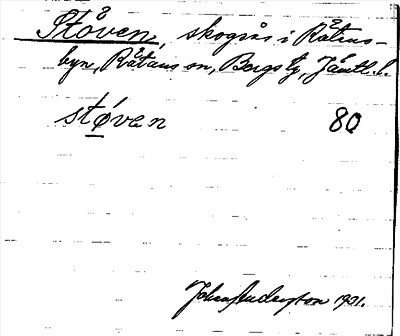 Ståven, skogsås i Rätans-
byn, Rätans sn, Bergs tg, Jämtl. l.
støven 80
Johan Anderson 1921.